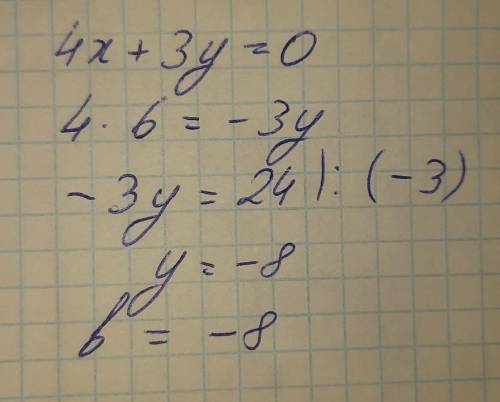 4x + 3y = 0
4 · 6 = -3y
-3y = 24 | : (-3)
y = -8
b = -8